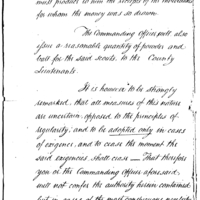 must produce to him the receipts of the individuals
for whom the money was so drawn.
The Commanding Officer will also
issue a reasonable quantity of powder and
ball for the said scouts to the County
Lieutenants.
It is however to be strongly
remarked, that all measures of this nature
are uncertain, opposed to the principles of
regularity, and to be adopted only in cases
of exigence, and to cease the moment the
said exigences shall cease — That therefore
you or the Commanding Officer aforesaid,
will not confer the authority herein contained
but in cases of the most